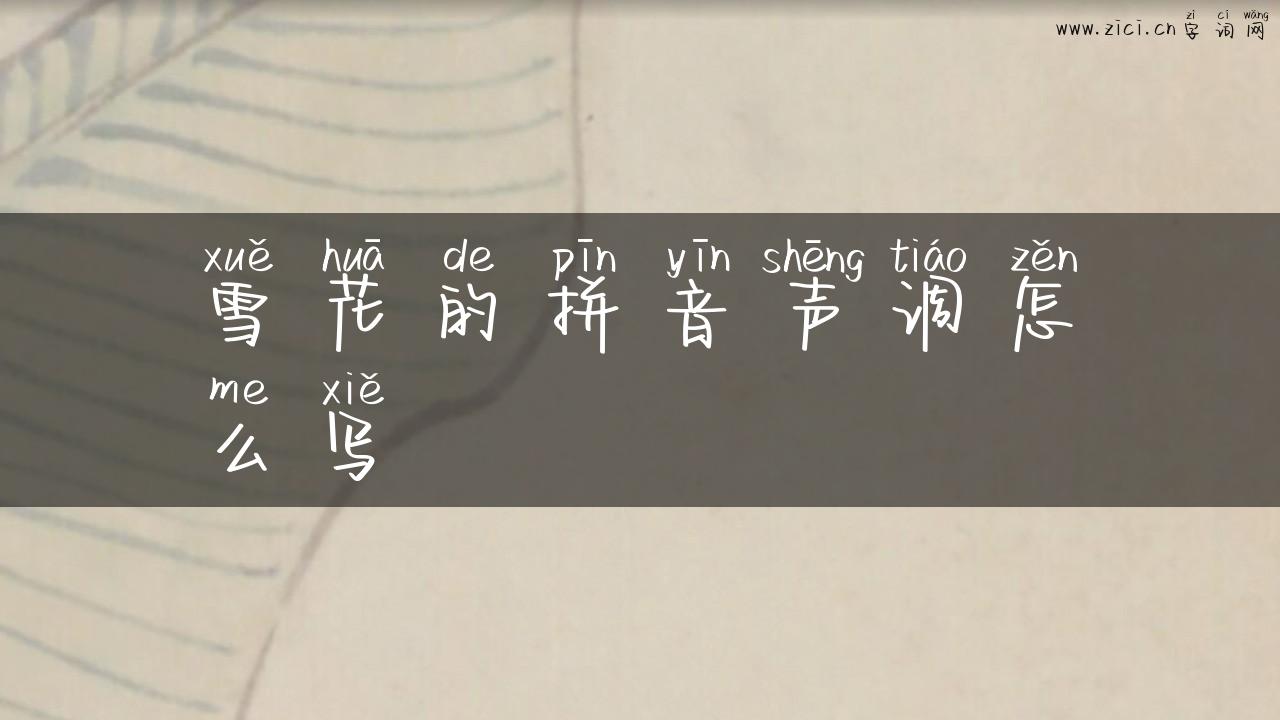 zì cí wǎng
www.zici.cn 字词网
xuě huā de pīn yīn shēng tiáo zěn
雪花的拼音声调怎
me xiě
么写